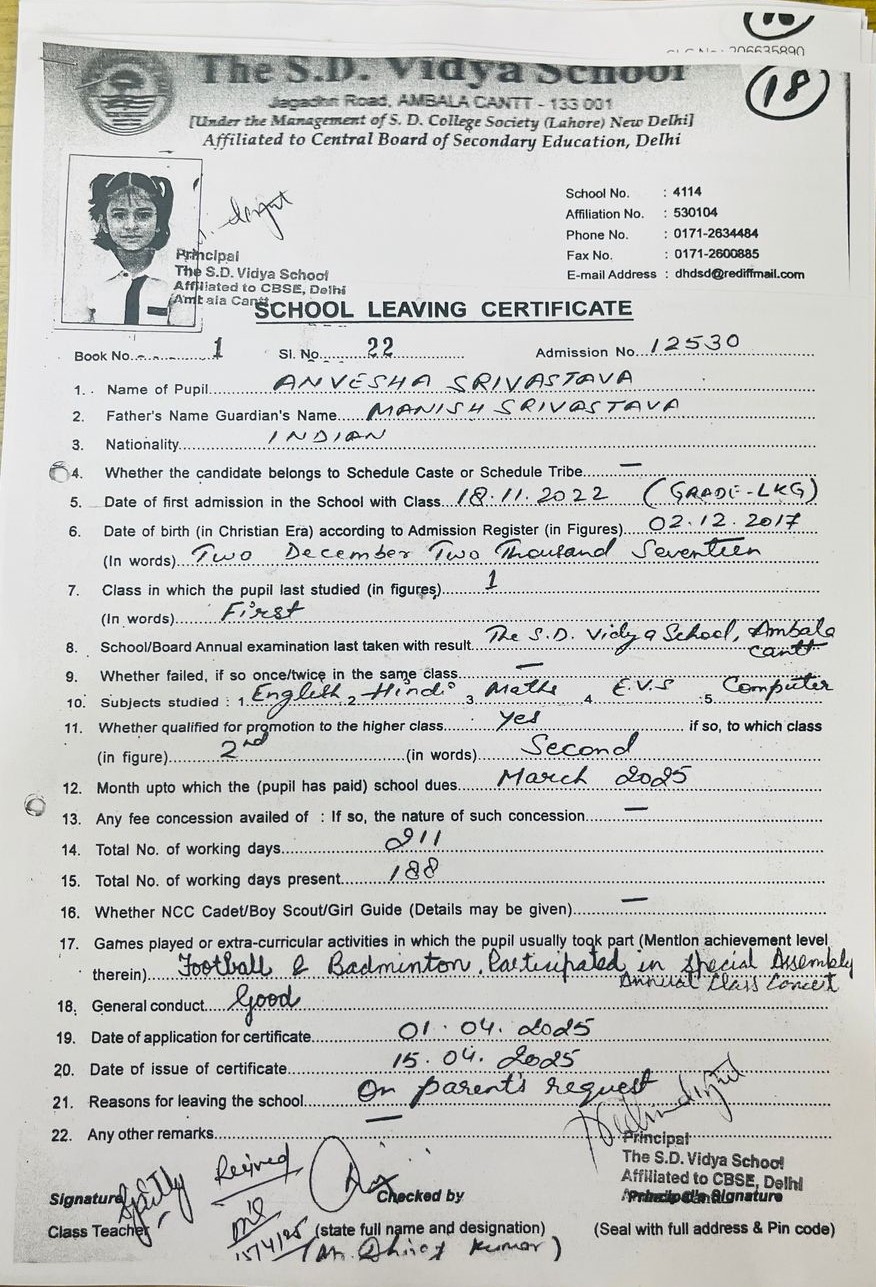 18
The S.D. Vidya School
Jagadhri Road, AMBALA CANTT - 133 001
[Under the Management of S. D. College Society (Lahore) New Delhi]
Affiliated to Central Board of Secondary Education, Delhi
School No. : 4114
Affiliation No. : 530104
Phone No. : 0171-2634484
Fax No. : 0171-2600885
E-mail Address : dhdsd@rediffmail.com
Principal
The S.D. Vidya School
Affiliated to CBSE, Delhi
Ambala Cantt
SCHOOL LEAVING CERTIFICATE
Book No. 1 Sl. No. 22 Admission No. 12530
1. Name of Pupil ANVESHA SRIVASTAVA
2. Father's Name Guardian's Name MANISH SRIVASTAVA
3. Nationality INDIAN
4. Whether the candidate belongs to Schedule Caste or Schedule Tribe —
5. Date of first admission in the School with Class 18.11.2022 (GRADE-LKG)
6. Date of birth (in Christian Era) according to Admission Register (in Figures) 02.12.2017
(In words) Two December Two Thousand Seventeen
7. Class in which the pupil last studied (in figures) 1
(In words) First
8. School/Board Annual examination last taken with result The S.D. Vidya School, Ambala
Cantt
9. Whether failed, if so once/twice in the same class —
10. Subjects studied : 1. English 2. Hindi 3. Maths 4. E.V.S 5. Computer
11. Whether qualified for promotion to the higher class Yes if so, to which class
(in figure) 2nd (in words) Second
12. Month upto which the (pupil has paid) school dues March 2025
13. Any fee concession availed of : If so, the nature of such concession —
14. Total No. of working days 211
15. Total No. of working days present 188
16. Whether NCC Cadet/Boy Scout/Girl Guide (Details may be given) —
17. Games played or extra-curricular activities in which the pupil usually took part (Mention achievement level
therein) Football & Badminton, Participated in Special Assembly
Annual Class Concert
18. General conduct Good
19. Date of application for certificate 01.04.2025
20. Date of issue of certificate 15.04.2025
21. Reasons for leaving the school On parent's request
22. Any other remarks —
Principal
The S.D. Vidya School
Affiliated to CBSE, Delhi
Received
Signature Checked by Principal's Signature
Class Teacher (state full name and designation) (Seal with full address & Pin code)
15/4/25